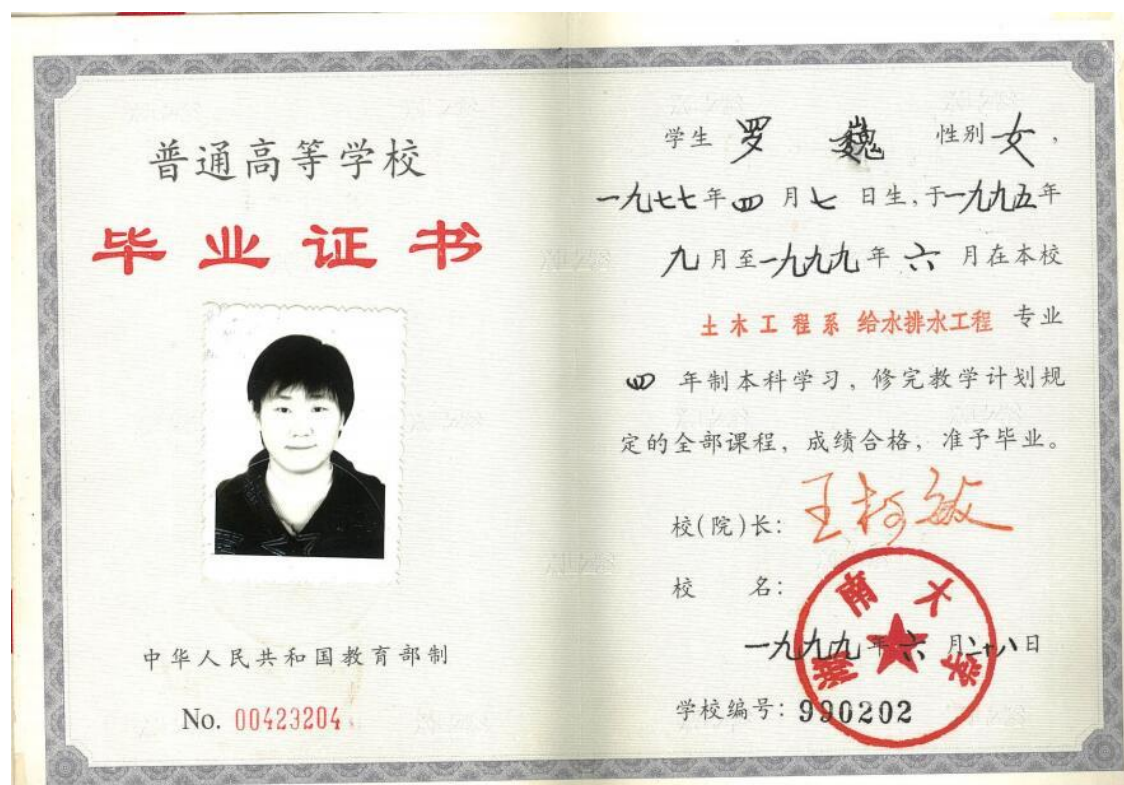 普通高等学校
毕业证书
中华人民共和国教育部制
No. 00423204
学生 罗 巍 性别 女，
一九七七年四月七日生，于一九九五年
九月至一九九九年六月在本校
土木工程系 给水排水工程 专业
四年制本科学习，修完教学计划规
定的全部课程，成绩合格，准予毕业。
校(院)长：王柯敏
校 名：
湖南大学
一九九九年六月二十八日
学校编号：990202